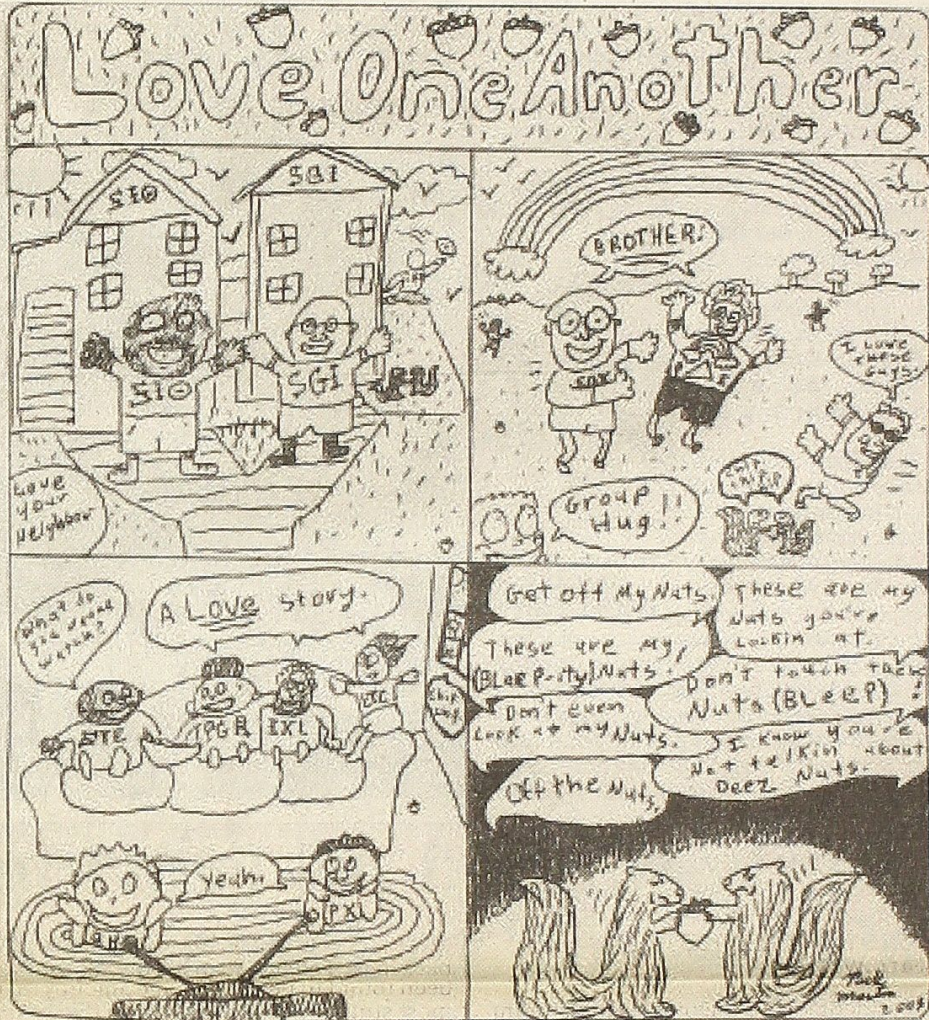 Love One Another
SIO
SGI
SIO
SGI
Love
your
Neighbor
BROTHER!
I LOVE
THESE
Guys.
Group
Hug!!
What do
you wanna
watch?
A Love story.
PGR
IXL
Yeah.
Get off My Nuts.
These are my
Nuts you're
Lookin at.
These are my,
(BLeeP-ity) Nuts.
Don't touch them
Nuts (BLeeP)!
Don't even
Look at my Nuts.
I know you're
Not talkin about
Deez Nuts.
Off the Nuts.
2004